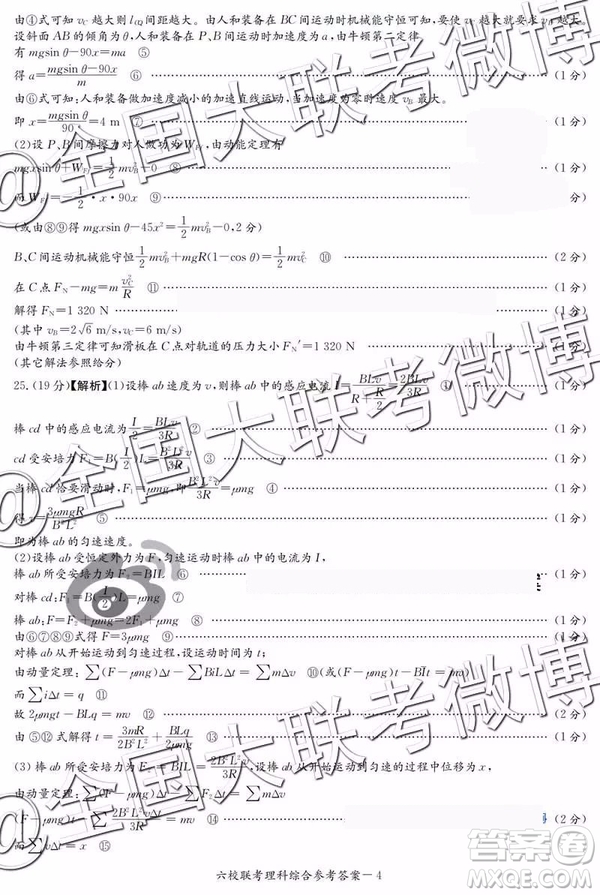 由④式可知 v_C 越大则 l_CQ 间距越大。由人和装备在 BC 间运动时机械能守恒可知,要使 v_C 越大就要 v_B 越大。
设斜面 AB 的倾角为 θ,人和装备在 P、B 间运动时加速度为 a,由牛顿第二定律
有 mgsin θ-90x=ma ⑤
得 a=(mgsin θ-90x)/m ⑥ (1 分)
由⑥式可知:人和装备做加速度减小的加速直线运动,当加速度为零时速度 v_B 最大。
即 x=mgsin θ/90=4 m ⑦ (1 分)
(2)设 P、B 间摩擦力对人做功为 W_Ff,由动能定理有
mgxsin θ+W_Ff=1/2 mv_B²-0 ⑧ (1 分)
而 W_Ff=-1/2·x·90x ⑨ (1 分)
(或由⑧⑨得 mgxsin θ-45x²=1/2 mv_B²-0,2 分)
B、C 间运动机械能守恒 1/2 mv_B²+mgR(1-cos θ)=1/2 mv_C² ⑩ (2 分)
在 C 点 F_N-mg=m v_C²/R ⑪ (1 分)
解得 F_N=1 320 N (1 分)
(其中 v_B=2√6 m/s,v_C=6 m/s)
由牛顿第三定律可知滑板在 C 点对轨道的压力大小 F_N′=1 320 N (1 分)
(其它解法参照给分)
25.(19 分)【解析】(1)设棒 ab 速度为 v,则棒 ab 中的感应电流 I=BLv/(R+R/2)=2BLv/3R ① (1 分)
棒 cd 中的感应电流为 I/2=BLv/3R ② (1 分)
cd 受安培力 F₁=B(I/2)L=B²L²v/3R ③ (1 分)
当棒 cd 恰要滑动时,F₁=μmg,即 B²L²v/3R=μmg ④ (1 分)
得 v=3μmgR/B²L² ⑤ (1 分)
即为棒 ab 的匀速速度。
(2)设棒 ab 受恒定外力为 F,匀速运动时棒 ab 中的电流为 I,
棒 ab 所受安培力为 F₂=BIL ⑥ (1 分)
对棒 cd:F₁=B(I/2)L=μmg ⑦ (1 分)
棒 ab:F=F₂+μmg ⑧ (1 分)
由⑥⑦⑧⑨式得 F=3μmg (1 分)
对棒 ab 从开始运动到匀速过程,设运动时间为 t;
由动量定理:∑(F-μmg)Δt-∑BiLΔt=∑mΔv ⑩(或(F-μmg)t-BILt=mv) (1 分)
而∑iΔt=q ⑪ (1 分)
故 2μmgt-BLq=mv ⑫ (1 分)
由 ⑤⑫式解得 t=3mR/2B²L²+BLq/2μmg ⑬ (1 分)
(3)棒 ab 所受安培力为 F₂=BIL=2B²L²v/3R,设棒 ab 从开始运动到匀速的过程中位移为 x,
由动量定理:∑(F-μmg)Δt-∑2B²L²v/3R Δt=∑mΔv
(F-μmg)t-2B²L²/3R x=mv ⑭ (2 分)
六校联考理科综合参考答案-4
@全国大联考微博
@全国大联考微博
@全国大联考微博
答案圈
MXQE.COM